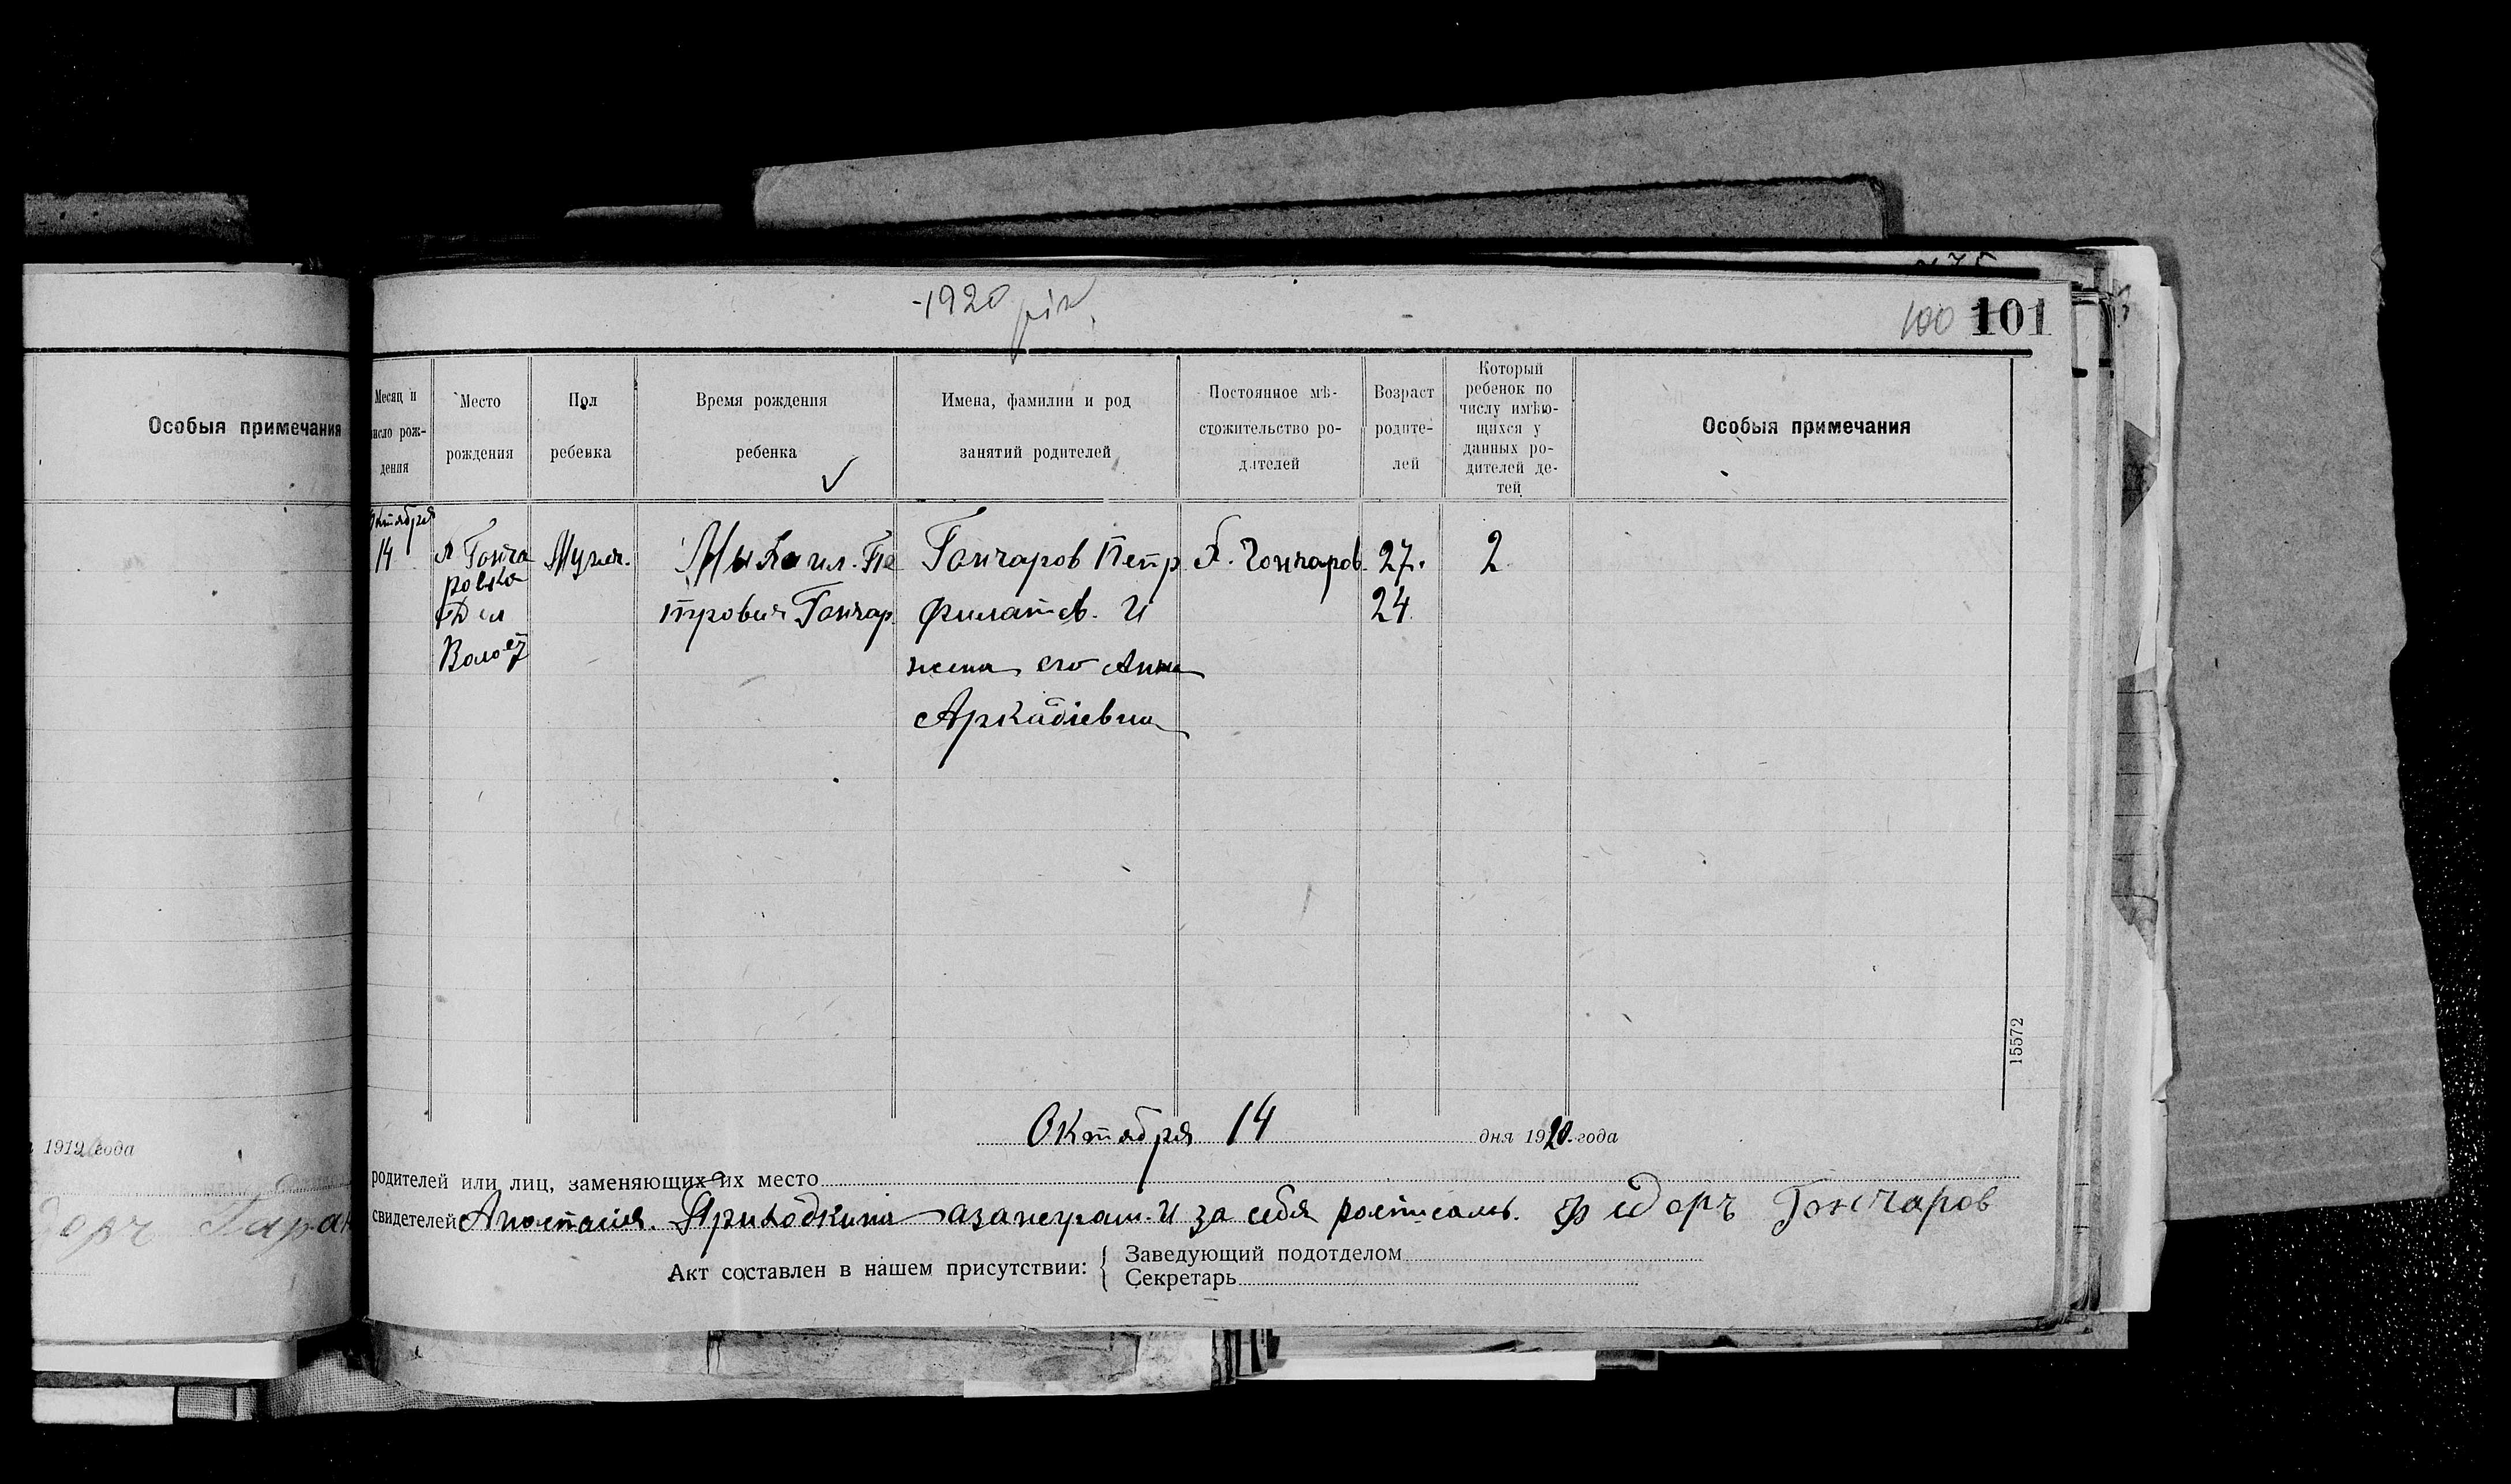 -1920 рік
100 101
Особыя примечания
Месяц и
число рож-
дения
Место
рождения
Пол
ребенка
Время рождения
ребенка
Имена, фамилии и род
занятий родителей
Постоянное мѣ-
стожительство ро-
дителей
Возраст
родите-
лей
Который
ребенок по
числу имѣю-
щихся у
данных ро-
дителей де-
тей
Особыя примечания
Октября
14
Гонча
ровка
Волос
Мужск.
Михаил. Пе
трович Гончар.
Гончаров Петр
Филатов. и
жена его Анна
Аркадіевна
Х. Гончаров.
27.
24.
2
15572
Октября 14 дня 1920 года
1919 года
родителей или лиц, заменяющих их место
свидетелей Анастасия. Приходкина за неграм. и за себя росписалс. Федоръ Гончаров
Акт составлен в нашем присутствии:
Заведующий подотделом
Секретарь